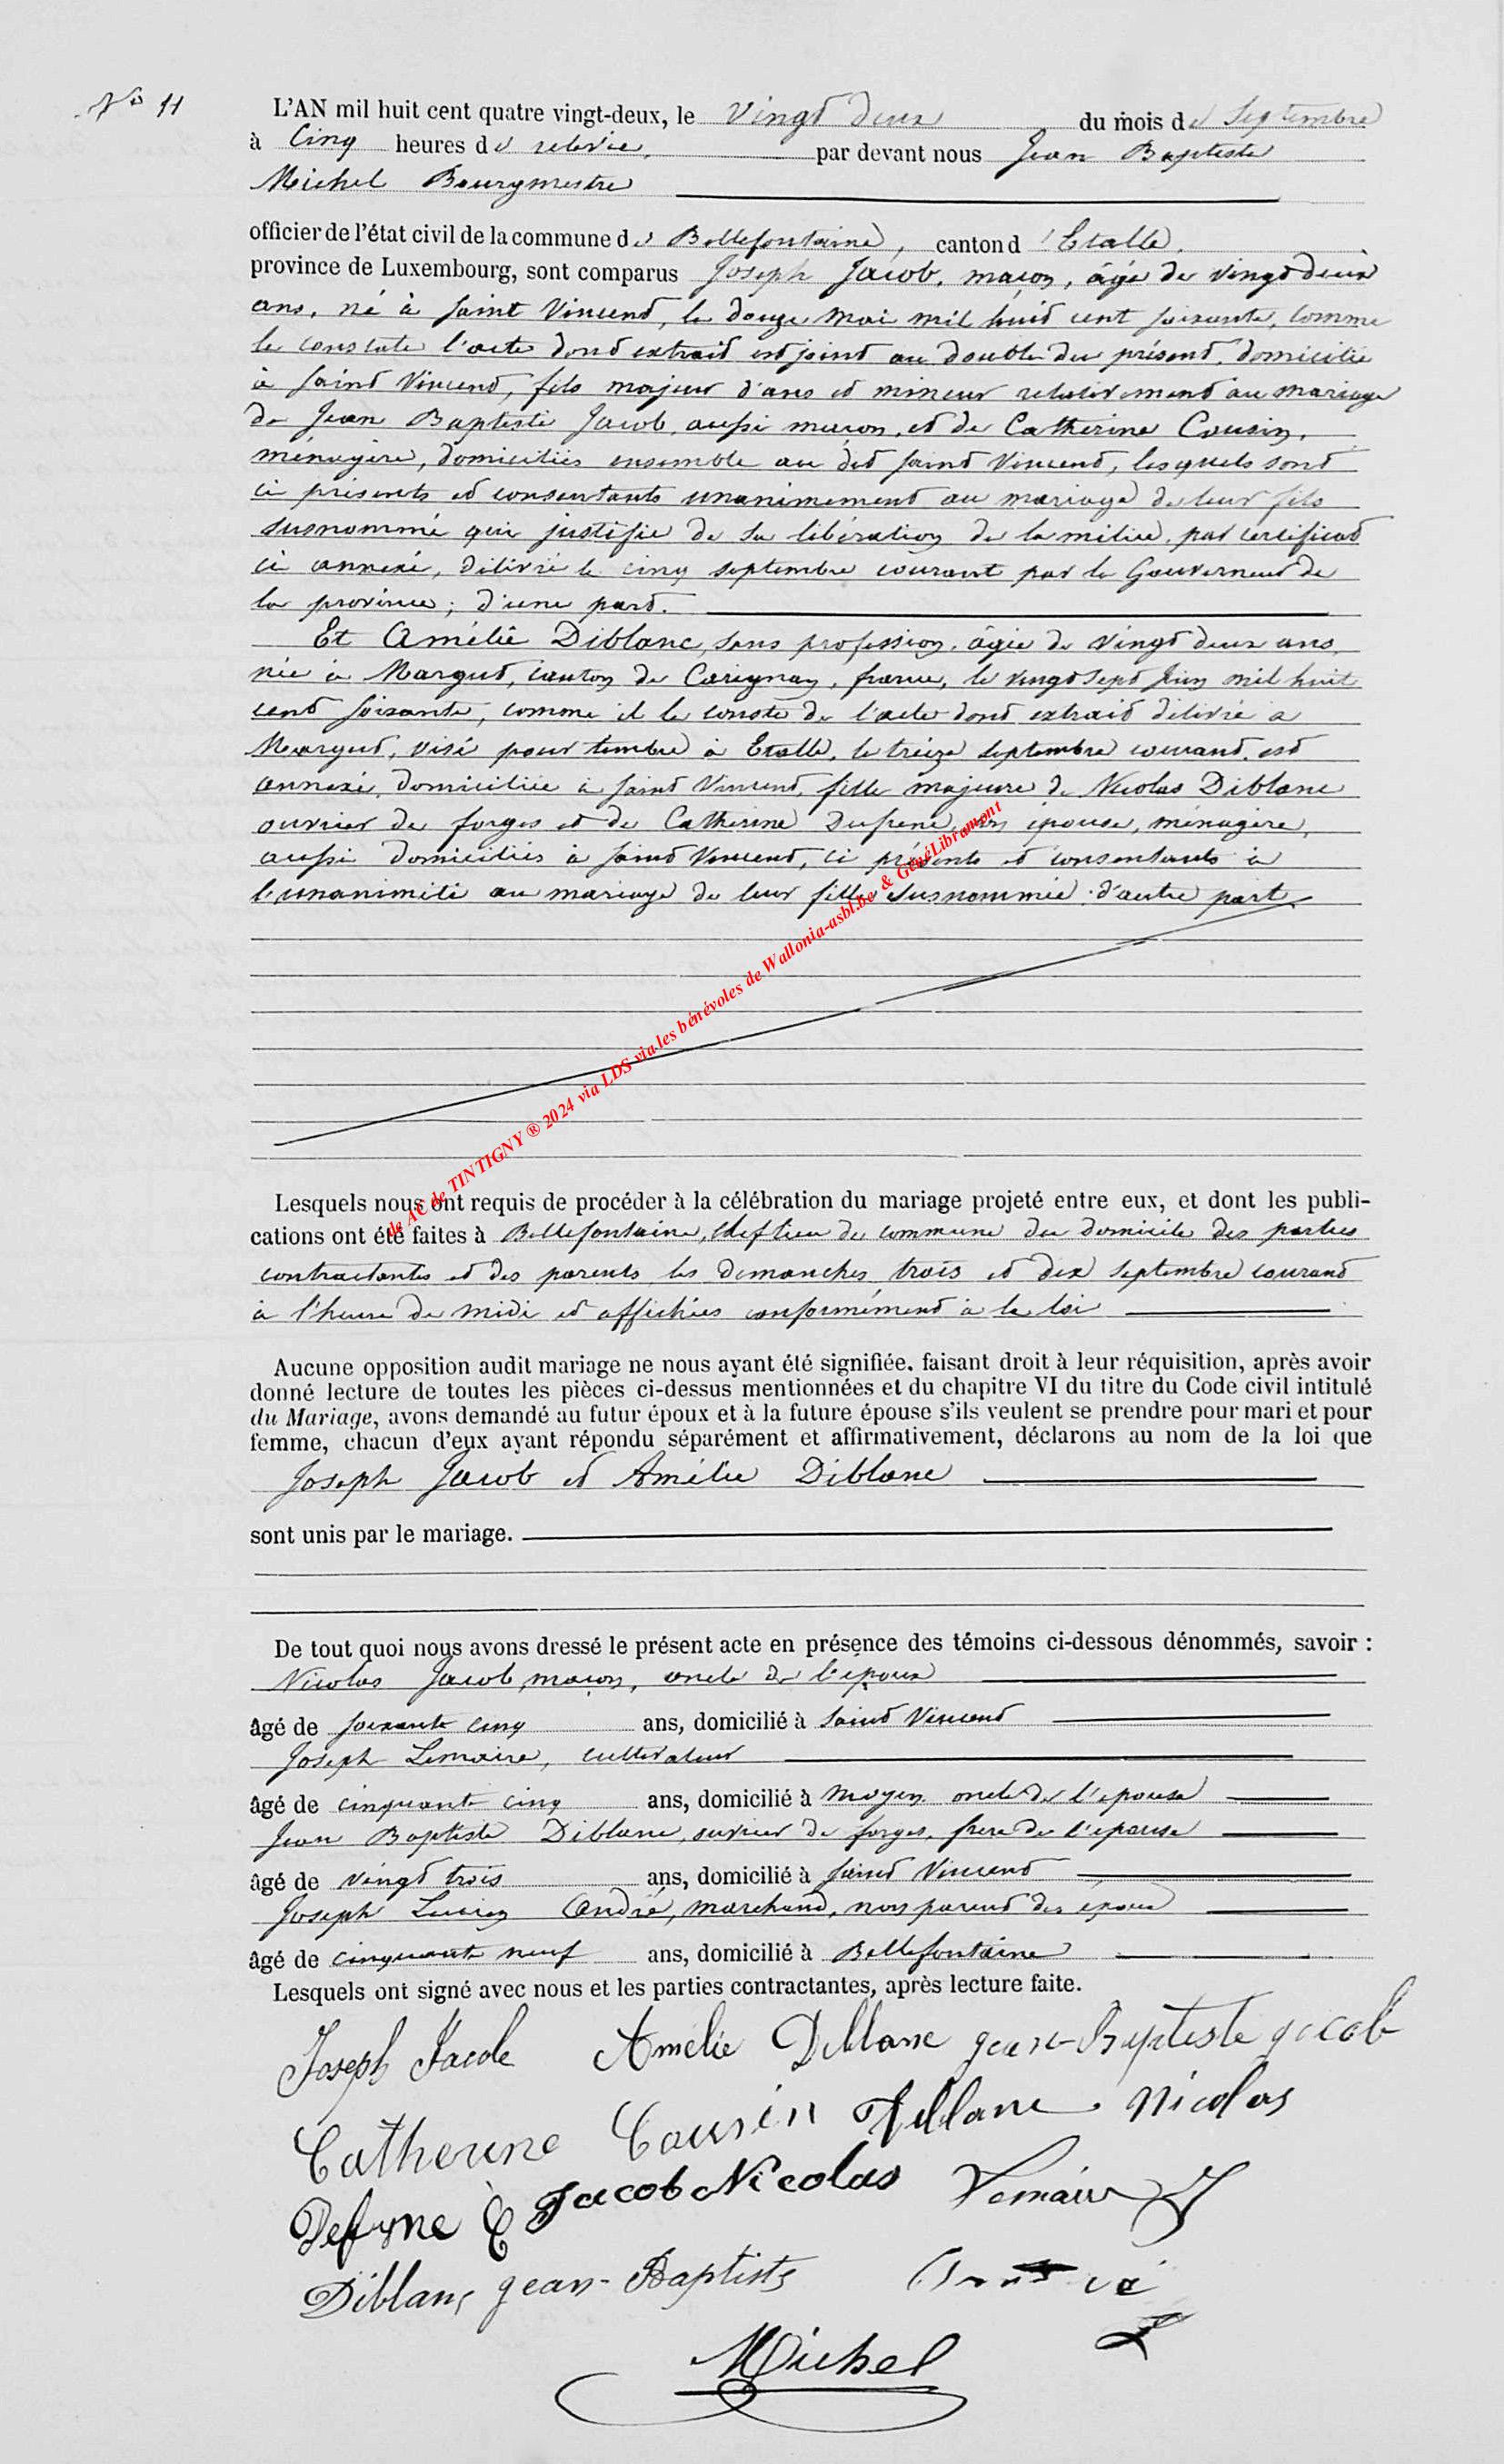 No 11
L'AN mil huit cent quatre vingt-deux, le vingt deux du mois de Septembre
à Cinq heures de relevée, par devant nous Jean Baptiste
Michel Bourgmestre
officier de l'état civil de la commune de Bellefontaine, canton d'Etalle.
province de Luxembourg, sont comparus Joseph Jacob, maçon, âgé de vingt deux
ans, né à Saint Vincent, le douze mai mil huit cent soixante, comme
le constate l'acte dont extrait est joint au double du présent, domicilié
à Saint Vincent, fils majeur d'ans et mineur relativement au mariage
de Jean Baptiste Jacob, aussi maçon, et de Catherine Cousin,
ménagère, domiciliés ensemble au dit Saint Vincent, lesquels sont
ci présents et consentants unanimement au mariage de leur fils
susnommé qui justifie de sa libération de la milice, par certificat
ci annexé, délivré le cinq septembre courant par le Gouverneur de
la province; d'une part.
Et Amélie Diblanc, sans profession, âgée de vingt deux ans,
née à Margut, canton de Carignan, france, le vingt sept Juin mil huit
cent soixante, comme il le conste de l'acte dont extrait délivré a
Margut, visé pour timbre à Etalle, le treize septembre courant, est
annexé, domiciliée à Saint Vincent, fille majeure de Nicolas Diblanc
ouvrier de forges et de Catherine son épouse, ménagère,
aussi domiciliés à Saint Vincent, ci présents et consentants à
l'unanimité au mariage de leur fille susnommée; d'autre part.
de AC de TINTIGNY ® 2024 via LDS via les bénévoles de Wallonia-asbl.be & GénéLibramont
Lesquels nous ont requis de procéder à la célébration du mariage projeté entre eux, et dont les publi-
cations ont été faites à Bellefontaine, chef lieu de commune du domicile des parties
contractantes et des parents les dimanches trois et dix septembre courant
à l'heure de midi et affichées conformément à la loi
Aucune opposition audit mariage ne nous ayant été signifiée. faisant droit à leur réquisition, après avoir
donné lecture de toutes les pièces ci-dessus mentionnées et du chapitre VI du titre du Code civil intitulé
du Mariage, avons demandé au futur époux et à la future épouse s'ils veulent se prendre pour mari et pour
femme, chacun d'eux ayant répondu séparément et affirmativement, déclarons au nom de la loi que
Joseph Jacob et Amélie Diblanc
sont unis par le mariage.
De tout quoi nous avons dressé le présent acte en présence des témoins ci-dessous dénommés, savoir :
Nicolas Jacob, maçon, oncle de l'époux
âgé de soixante cinq ans, domicilié à Saint Vincent
Joseph Lemaire, cultivateur
âgé de cinquante cinq ans, domicilié à Moyen oncle de l'épouse
Jean Baptiste Diblanc, ouvrier de forges, frere de l'épouse
âgé de vingt trois ans, domicilié à Saint Vincent
Joseph Lucien André, marchand, non parent des époux
âgé de cinquante neuf ans, domicilié à Bellefontaine
Lesquels ont signé avec nous et les parties contractantes, après lecture faite.
Joseph Jacob Amélie Diblanc jean-Baptiste jacob
Catherine Cousin Diblanc Nicolas
C Jacob Nicolas Lemaire J
Diblanc jean-Baptiste
Michel